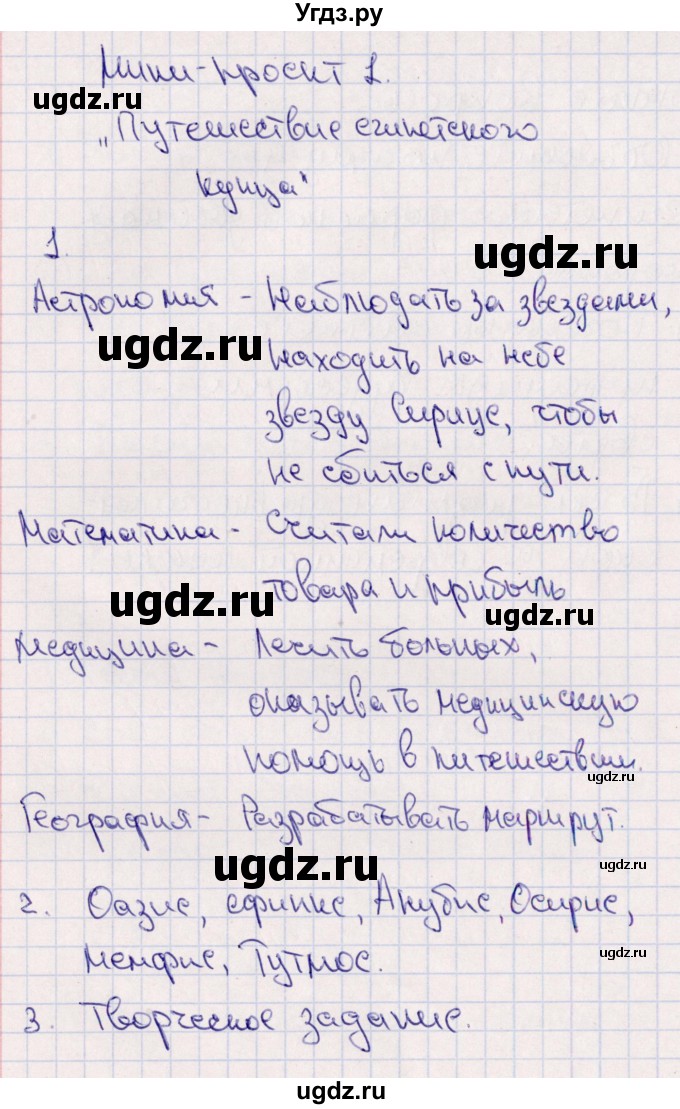 Угдз.ру
Мини-проект 1.
ugdz.ru
„Путешествие египетского
купца"
1.
ugdz.ru
Астрономия - Наблюдать за звездами,
ugdz.ru
находить на небе
звезду Сириус, чтобы
не сбиться с пути.
Математика - Считали количество
ugdz.ru
товара и прибыль
ugdz.ru
Медицина - Лечить больных,
оказывать медицинскую
помощь в путешествии.
ugdz.ru
География - Разрабатывать маршрут.
ugdz.ru
ugdz.ru
2. Оазис, сфинкс, Анубис, Осирис,
Мемфис, Тутмос.
ugdz.ru
3. Творческое задание.
ugdz.ru